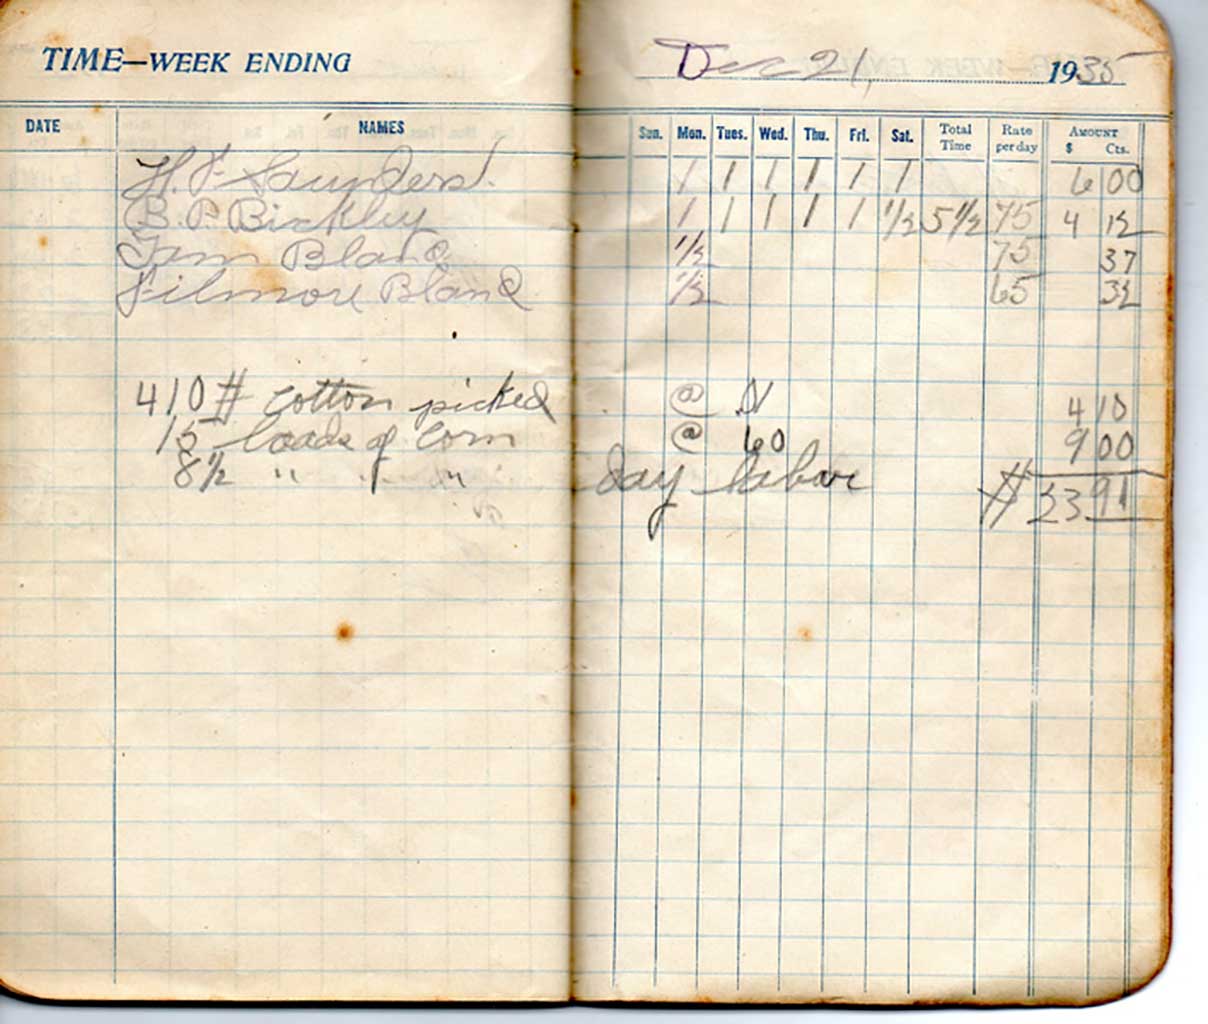 TIME—WEEK ENDING Dec 21, 1935
DATE NAMES Sun. Mon. Tues. Wed. Thu. Fri. Sat. Total Time Rate per day AMOUNT $ Cts.
H. F. Saunders. 1 1 1 1 1 1 6 00
B. P. Bickley 1 1 1 1 1 1/2 5 1/2 75 4 12
Bland 1/2 75 37
Filmore Bland 1/2 65 32
410 # cotton picked @ .01 4 10
15 loads of corn @ 60 9 00
8 1/2 " " " day labor $ 23 91